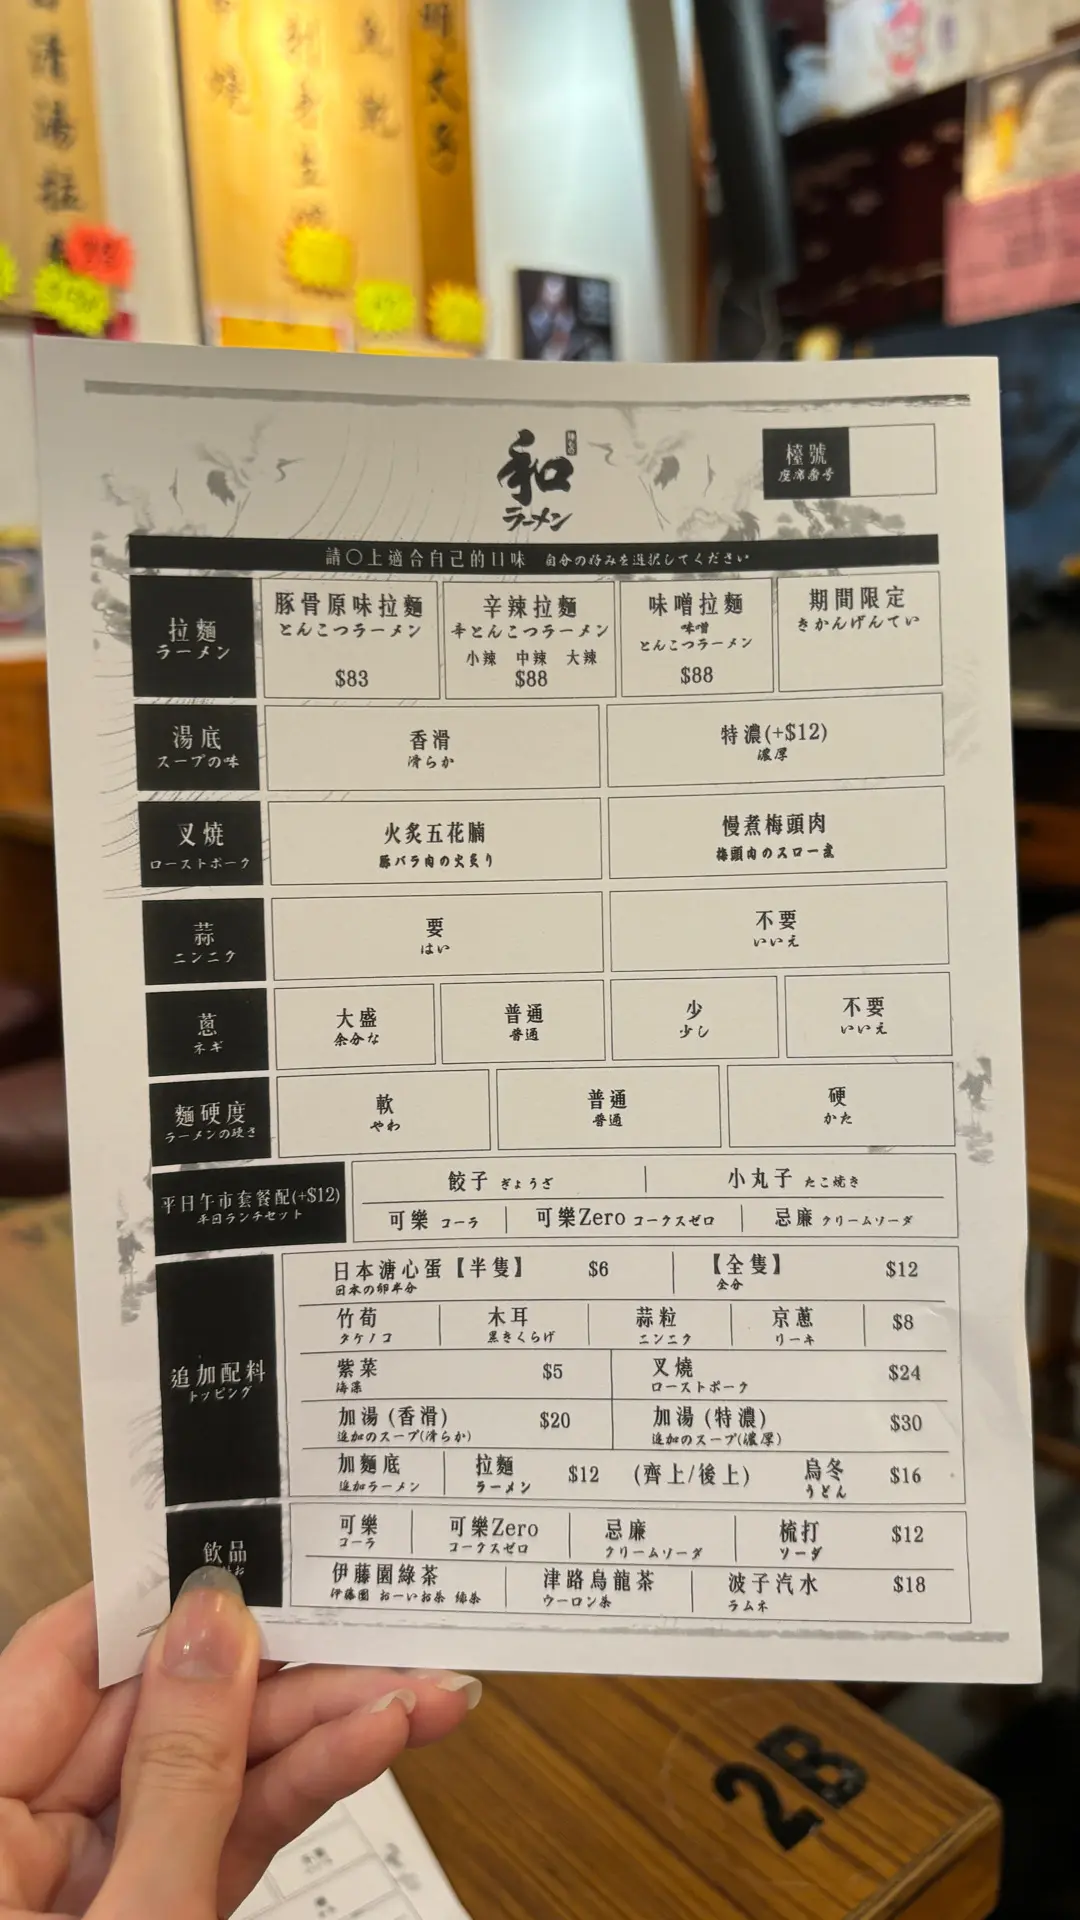 清湯拉
燒
和
ラーメン
檯號
座席番号
請〇上適合自己的口味 自分の好みを選択してください
拉麵
ラーメン
豚骨原味拉麵
とんこつラーメン
$83
辛辣拉麵
辛とんこつラーメン
小辣 中辣 大辣
$88
味噌拉麵
味噌
とんこつラーメン
$88
期間限定
きかんげんてい
湯底
スープの味
香滑
滑らか
特濃(+$12)
濃厚
叉燒
ローストポーク
火炙五花腩
豚バラ肉の火炙り
慢煮梅頭肉
梅頭肉のスロー煮
蒜
ニンニク
要
はい
不要
いいえ
蔥
ネギ
大盛
余分な
普通
普通
少
少し
不要
いいえ
麵硬度
ラーメンの硬さ
軟
やわ
普通
普通
硬
かた
平日午市套餐配(+$12)
平日ランチセット
餃子 ぎょうざ 小丸子 たこ焼き
可樂 コーラ 可樂Zero コークスゼロ 忌廉 クリームソーダ
追加配料
トッピング
日本溏心蛋【半隻】 $6 【全隻】 $12
日本の卵半分 全分
竹荀 木耳 蒜粒 京蔥 $8
タケノコ 黒きくらげ ニンニク リーキ
紫菜 $5 叉燒 $24
海藻 ローストポーク
加湯 (香滑) $20 加湯 (特濃) $30
追加のスープ(滑らか) 追加のスープ(濃厚)
加麵底 拉麵 $12 (齊上/後上)烏冬 $16
追加ラーメン ラーメン うどん
飲品
可樂 可樂Zero 忌廉 梳打 $12
コーラ コークスゼロ クリームソーダ ソーダ
伊藤園綠茶 津路烏龍茶 波子汽水 $18
伊藤園 おーいお茶 緑茶 ウーロン茶 ラムネ
2B